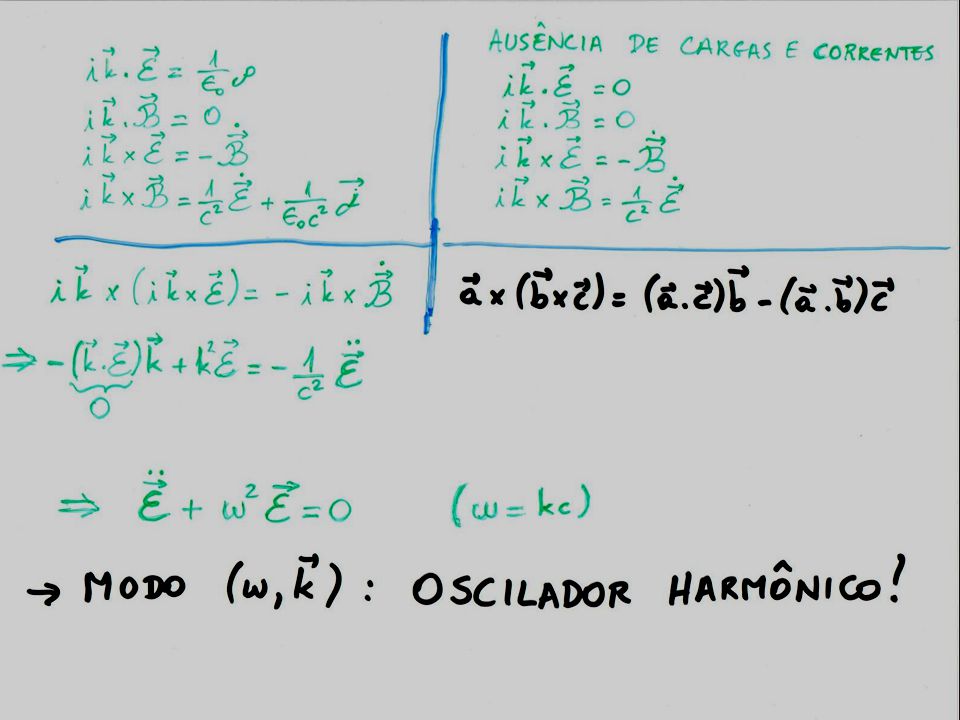 i k⃗ · ℰ⃗ = 1/ε₀ ρ
i k⃗ · ℬ⃗ = 0
i k⃗ × ℰ⃗ = - ℬ⃗̇
i k⃗ × ℬ⃗ = 1/c² ℰ⃗̇ + 1/ε₀c² j⃗
AUSÊNCIA DE CARGAS E CORRENTES
i k⃗ · ℰ⃗ = 0
i k⃗ · ℬ⃗ = 0
i k⃗ × ℰ⃗ = - ℬ⃗̇
i k⃗ × ℬ⃗ = 1/c² ℰ⃗̇
i k⃗ × (i k⃗ × ℰ⃗) = - i k⃗ × ℬ⃗̇
a⃗ × (b⃗ × c⃗) = (a⃗ . c⃗) b⃗ - (a⃗ . b⃗) c⃗
⇒ - (k⃗ · ℰ⃗) k⃗ + k² ℰ⃗ = - 1/c² ℰ⃗̈
0
⇒ ℰ⃗̈ + ω² ℰ⃗ = 0 (ω = kc)
→ MODO (ω, k⃗) : OSCILADOR HARMÔNICO!